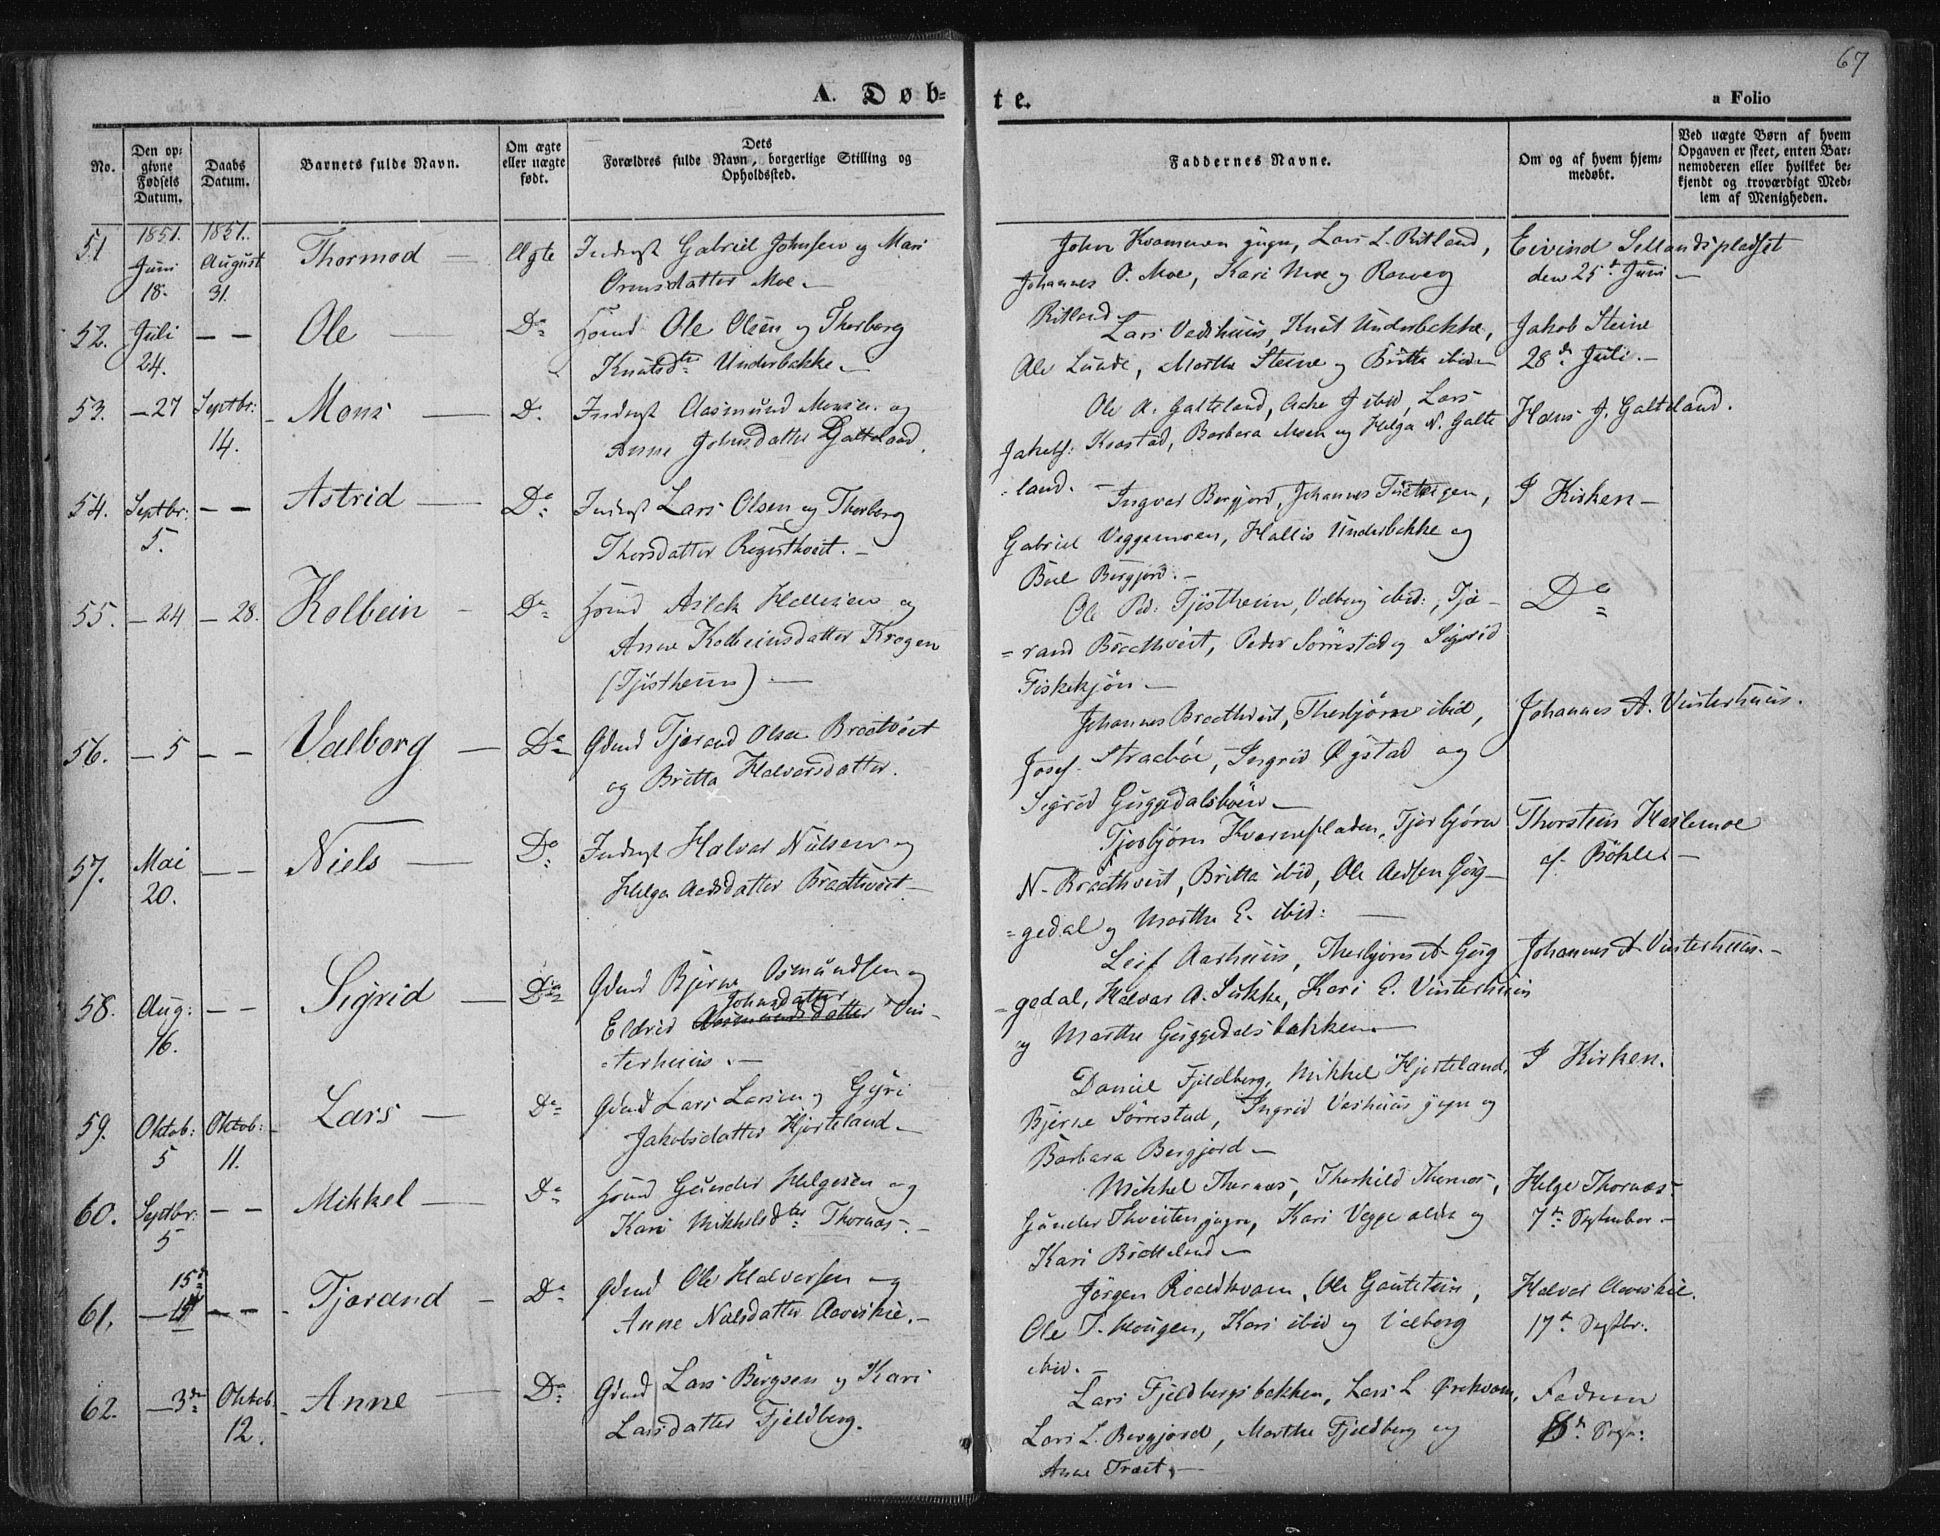 67
A. Døb-
te.
a Folio
No.
Den op-
givne
Fødsels
Datum.
Daabs
Datum.
Barnets fulde Navn.
Om ægte
eller uægte
født.
Dets
Forældres fulde Navn, borgerlige Stilling og
Opholdssted.
Faddernes Navne.
Om og af hvem hjem-
medøbt.
Ved uægte Børn af hvem
Opgaven er skeet, enten Bar-
nemoderen eller hvilket be-
kjendt og troværdigt Med-
lem af Menigheden.
51. 1851. Juni 18. 1851. August 31. Thormod Ægte
Inderst Gabriel Johnsen og Mari
Ormsdatter Moe.
John Kvammen jugn, Lars L. Ritland,
Johannes O. Moe, Kari Moe og
Ritland
Eivind Sellandspladset
den 25de Juni
52. Juli 24. — — Ole Do
Hsmd Ole Olsen og Thorborg
Knutsdtr Underbakke.
Lars Vadshuus, Knut Underbakke,
Ole Lunde, Marthe Steine og Britta ibid
Jakob Steine
28de Juli.
53. — 27 Septbr: 14. Mons Do
Inderst Aasmund Monsen og
Anne Johnsdatter Galteland.
Ole A. Galteland, Aake J ibid, Lars
Jakobs: Kvastad, Barbara Moen og Helga N. Galte
land.
Hans J. Galteland.
54. Septbr: 5. — — Astrid Do
Inderst Lars Olsen og Thorborg
Thorsdatter Rogusthveit.
Ingvar Bergjord, Johannes
Gabriel Veggemoen, Hallis Underbakke og
Boel Bergjord.
I Kirken
55. — 24 — 28. Kolbein Do
Hsmd Aslak Hellesen og
Anne Kolbeinsdatter Krogen
(Tjøstheim)
Ole Ped: Tjøstheim, Valborg ibid:, Tjø-
rand Braathveit, Peder Sørrestad og Sigrid
Fiskekjøn
Do
56. — 5 — — Valborg Do
Gdmd Tjørand Olsen Braatveit
og Britta Halvorsdatter.
Johannes Braathveit, Thorbjørn ibid,
Josef Straabøe, Ingrid Øystad og
Sigrid Guggedalsbøen
Johannes A. Vinterhuus.
57. Mai 20. — — Niels Do
Inderst Halvor Nielsen og
Helga Aadsdatter Braathveit
Tjorbjørn Kvarnepladen, Tjorbjørn
N. Braathveit, Britta ibid, Ole Aadsen Gug-
gedal og Marthe E. ibid:
Thorstein Hailemoe
af Bøhle
58. Aug: 16. — — Sigrid Do
Gdmd Bjerne Osmundsen og
Johnsdatter
Eldrid Aasmundsdatter Vin-
terhuus.
Leif Aarhuus, Thorbjørn A Gug
gedal, Halvor A. Sukke, Kari E. Vinterhuus
og Marthe Guggedalsbakken
Johannes A Vinterhuus.
59. Oktob: 5 Oktob: 11. Lars Do
Gdmd Lars Larsen og Gyri
Jakobsdatter Hjorteland
Daniel Fjeldberg, Mikkel Hjorteland,
Bjerne Sørrestad, Ingrid Vashuus jugn og
Barbara Bergjord
I Kirken.
60. Septbr: 5 — — Mikkel Do
Hsmd Gunder Helgesen og
Kari Mikkelsdtr Thornæs.
Mikkel Thornæs, Thorkild Thornæs,
Gunder Thveiten jugn, Kari Vegge og
Kari Bratteland
Helge Thornæs
7de September
61. 15de — — Tjorand Do
Gdmd Ole Halvorsen og
Anne Nielsdatter Aaviskie.
Jørgen Roaldkvam, Ole Gautstun,
Ole T. Mougen, Kari ibid og Valborg
ibid.
Halvor Aaviskie.
17de Septbr.
62. — 3de Oktob. 12. Anne Do
Gdmd Lars Børgsen og Kari
Larsdatter Fjeldberg.
Lars Fjeldbergsbakken, Lars L. Ørekvam,
Lars L. Bergjord, Marthe Fjeldberg og
Anne Træet,
Faderen
8de Septr: